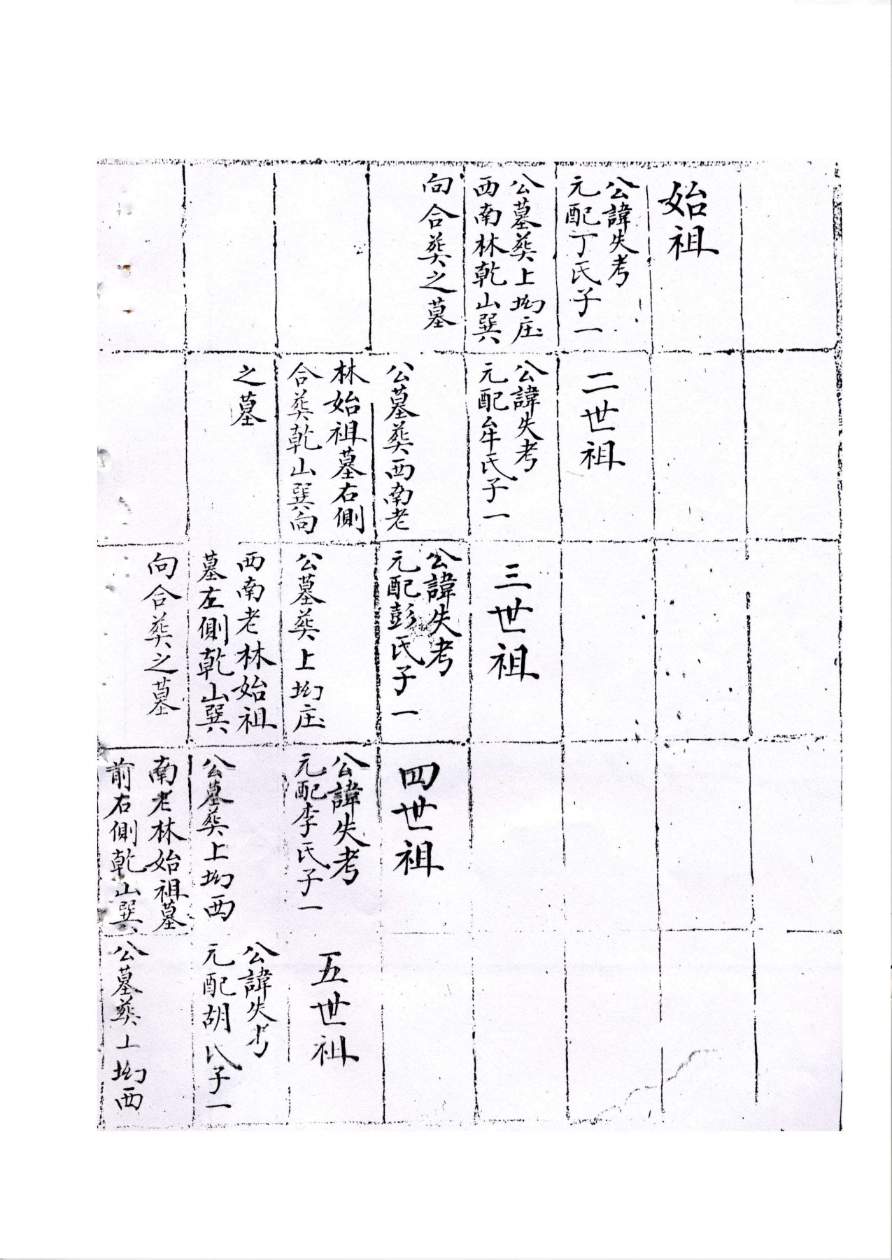 始祖
公諱失考
元配丁氏子一
公墓葬上坳庄
西南林乾山巽
向合葬之墓
二世祖
公諱失考
元配牟氏子一
公墓葬西南老
林始祖墓右側
合葬乾山巽向
之墓
三世祖
公諱失考
元配彭氏子一
公墓葬上坳庄
西南老林始祖
墓左側乾山巽
向合葬之墓
四世祖
公諱失考
元配李氏子一
公墓葬上坳西
南老林始祖墓
前右側乾山巽
五世祖
公諱失考
元配胡氏子一
公墓葬上坳西